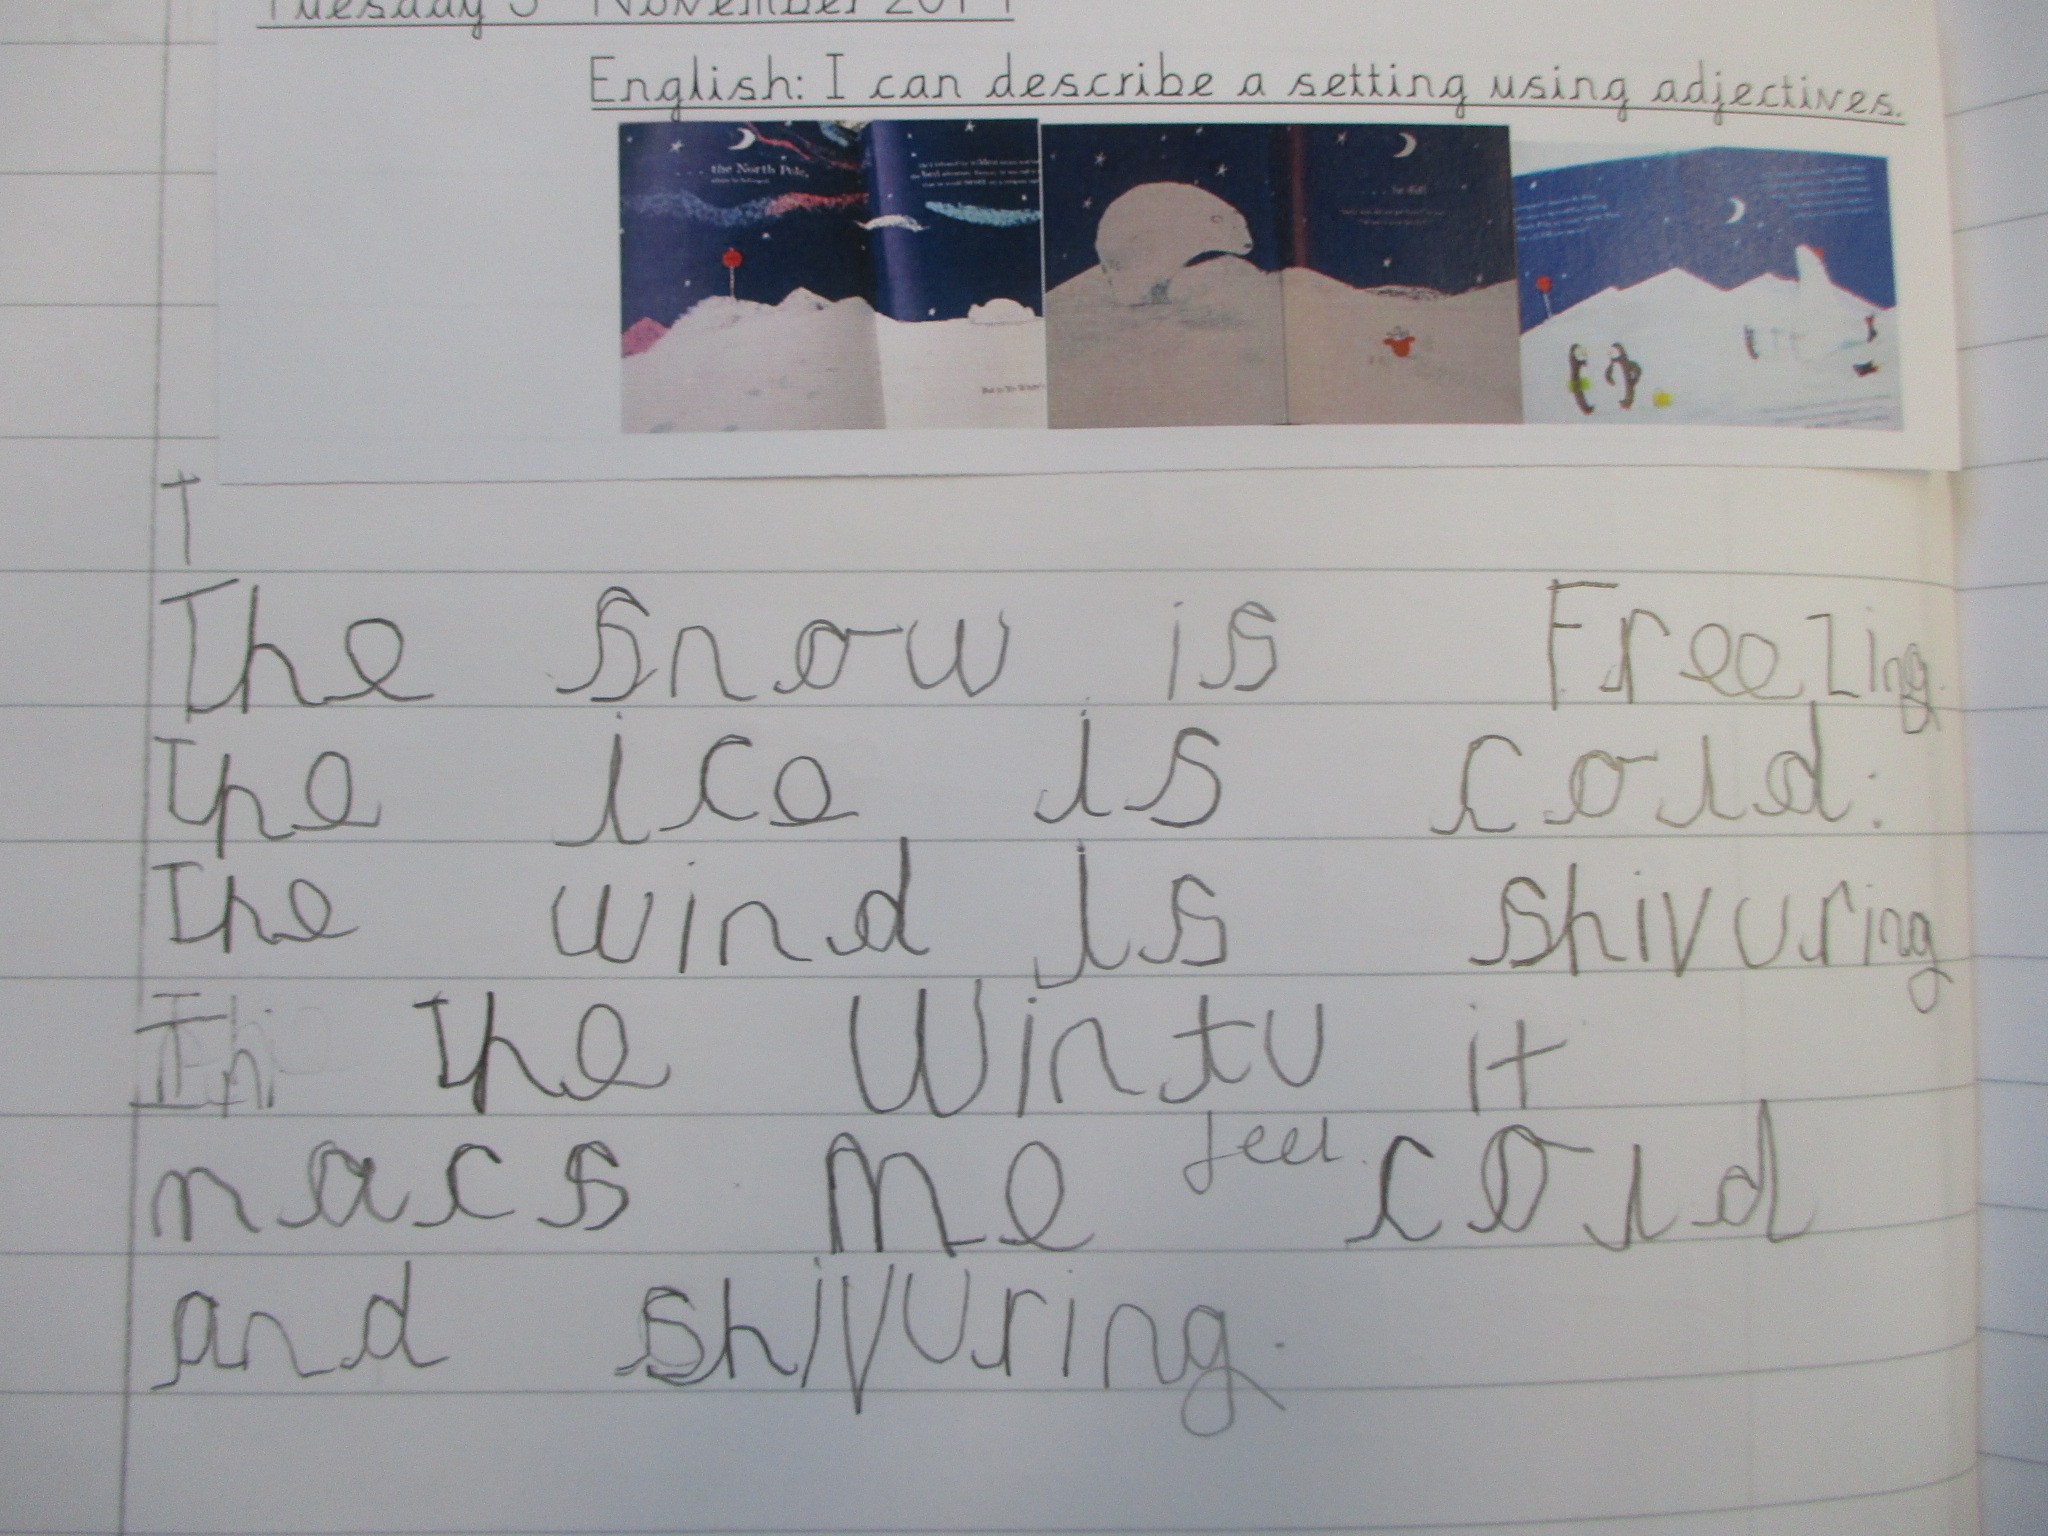 Tuesday 5 November 2019
English: I can describe a setting using adjectives.
... the North Pole,
T
The snow is Freezing.
The ice is cold.
The wind is shivuring
In the Wintu it
macs me feel cold
and shivuring.